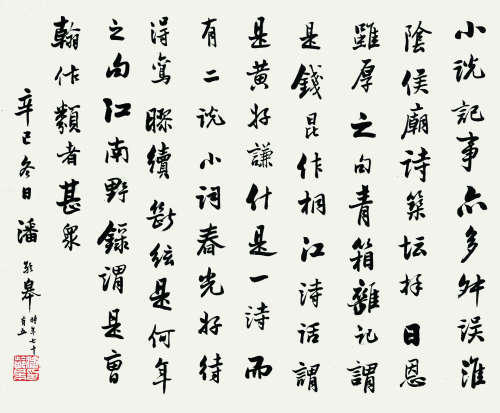 小说記事亦多舛误淮
陰侯廟詩築坛拝日恩
雖厚之句青箱雜记謂
是錢昆作桐江诗话謂
是黄好謙什是一诗而
有二说小词春光好待
得鸾膠續斷絃是何年
之句江南野錄謂是曹
翰作類者甚眾
辛巳冬日潘皋
時年七十
有五